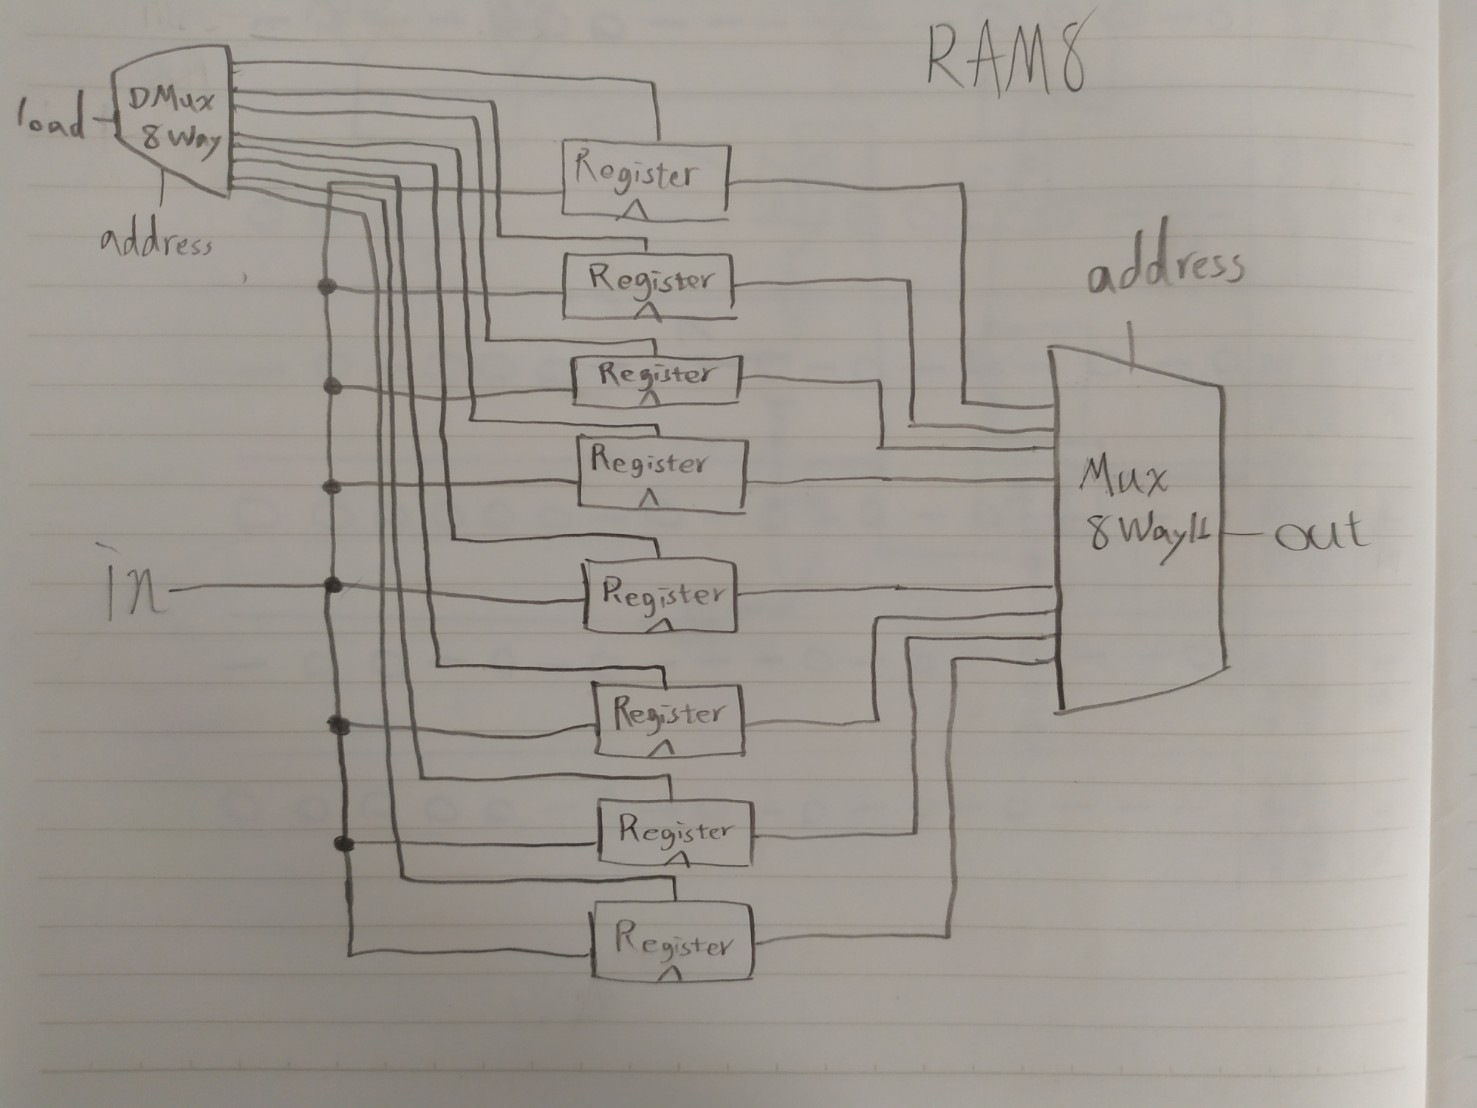 RAM8
load
DMux
8Way
address
Register
Register
Register
Register
Register
Register
Register
Register
in
address
Mux
out